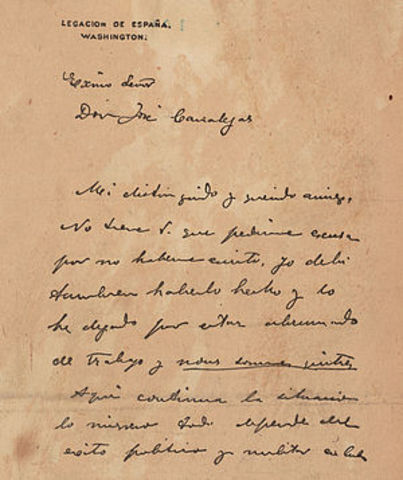 LEGACIÓN DE ESPAÑA.
WASHINGTON.
Exmo Señor
Don José Canalejas
Mi distinguido y querido amigo,
No tiene V. que pedirme excusa
por no haberme escrito, yo debí
tambien haberlo hecho y lo
he dejado por estar abrumado
de trabajo y nous sommes quittes
Aquí continua la situacion
lo mismo todo depende del
exito politico y militar en Cuba